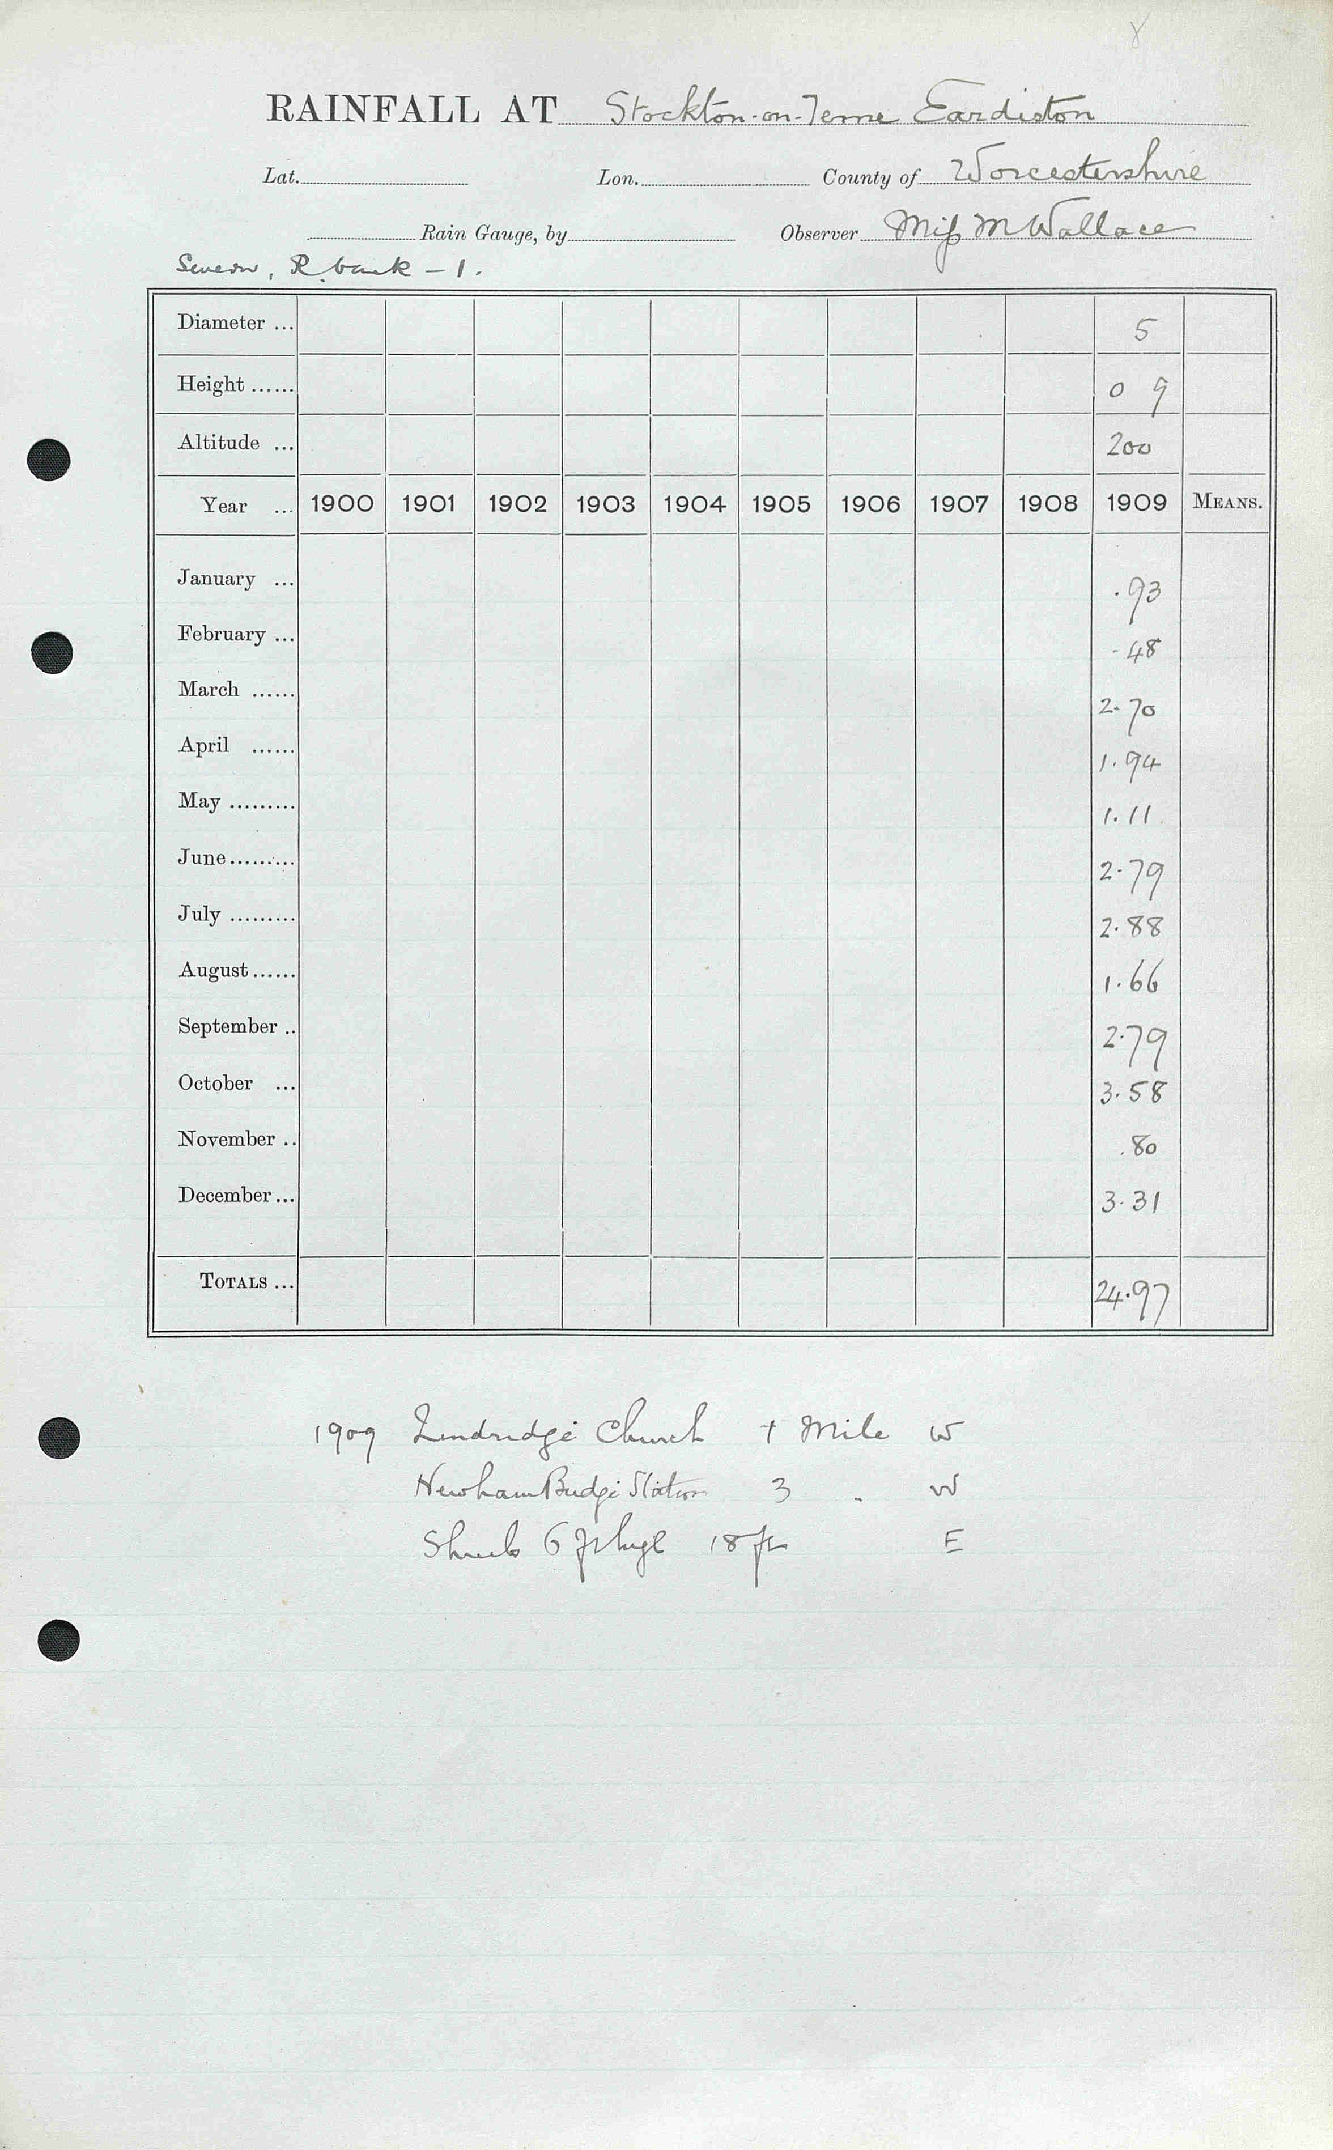 8
RAINFALL AT Stockton-on-Teme Eardiston
Lat. Lon. County of Worcestershire
Rain Gauge, by Observer Miss M Wallace
Severn, R. bank – 1.
Diameter ... 5
Height ...... 0 9
Altitude ... 200
Year ... 1900 1901 1902 1903 1904 1905 1906 1907 1908 1909 MEANS.
January ... .93
February ... .48
March ...... 2.70
April ...... 1.94
May ......... 1.11
June ......... 2.79
July ......... 2.88
August ...... 1.66
September .. 2.79
October ... 3.58
November .. .80
December ... 3.31
TOTALS ... 24.97
1909 Lindridge Church Mile W
Newham Bridge Station 3 W
Shrub 6 ft high 18 ft E